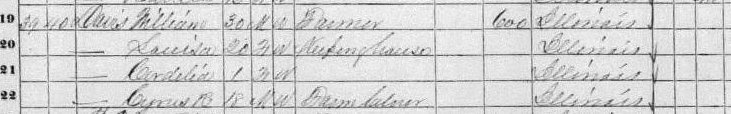 19 39 400 Davis William 30 M W Farmer 600 Illinois
20 — Louisa 20 F W Keeping house Illinois
21 — Cordelia 1 F W Illinois
22 — Cyrus B 18 M W Farm Laborer Illinois